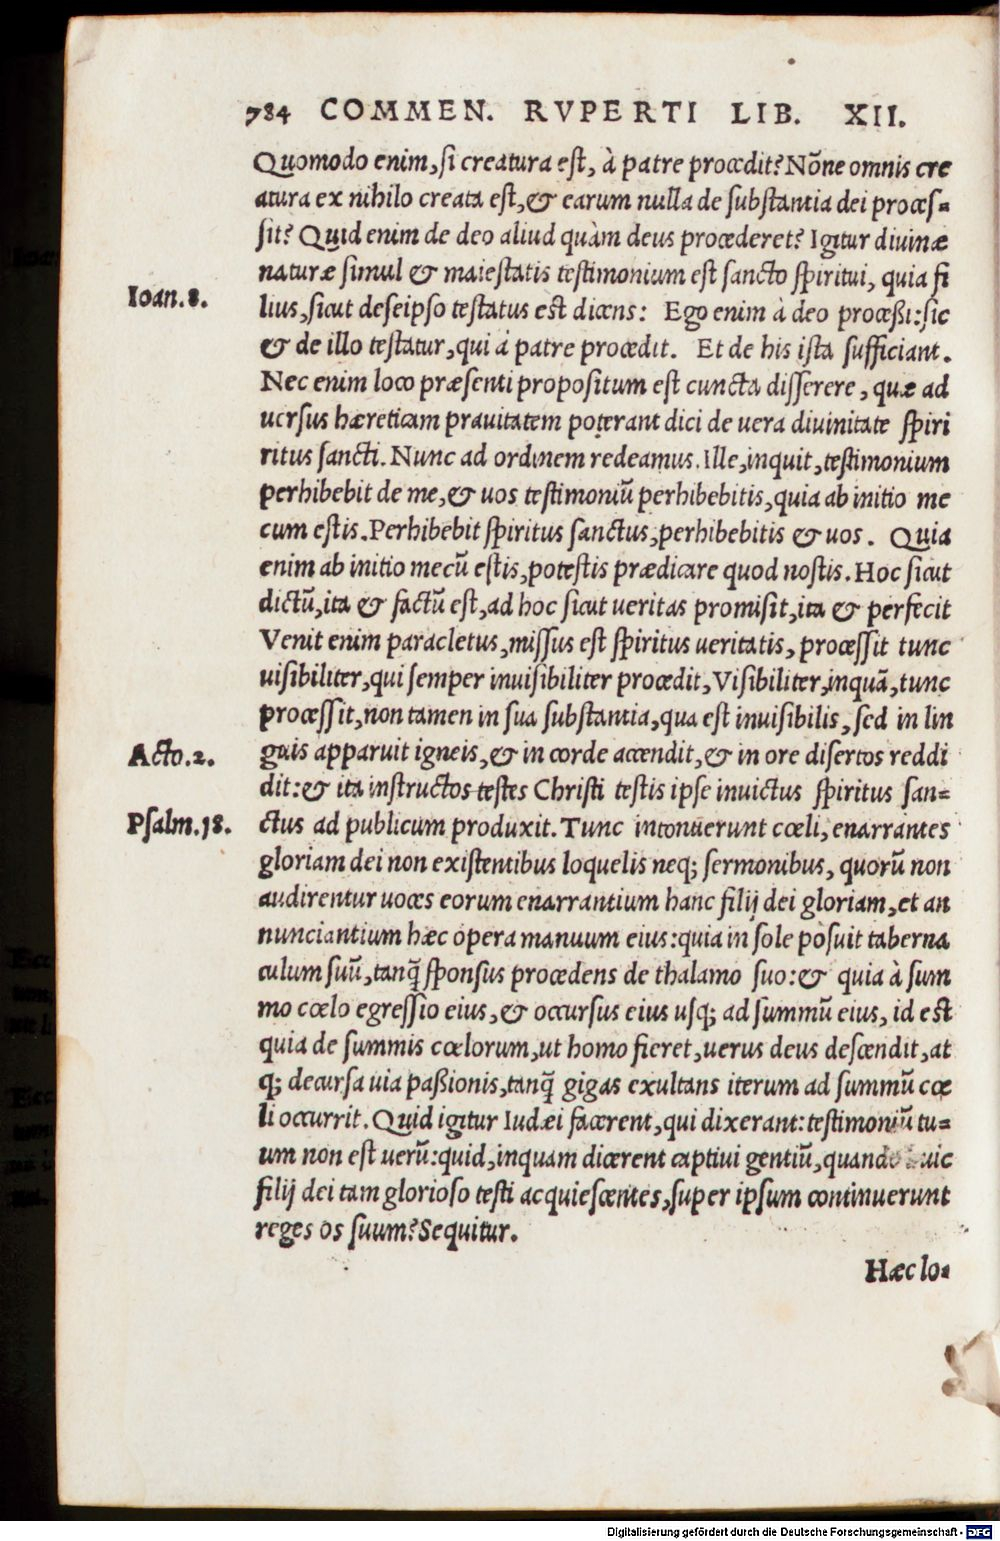 784 COMMEN. RVPERTI LIB. XII.
Quomodo enim,si creatura est, à patre procedit?Nõne omnis cre
atura ex nihilo creata est,& earum nulla de substantia dei proces-
sit? Quid enim de deo aliud quàm deus procederet? Igitur diuinæ
naturæ simul & maiestatis testimonium est sancto spiritui, quia fi
Ioan.8.
lius,sicut deseipso testatus est dicens: Ego enim à deo processi:sic
& de illo testatur,qui à patre procedit. Et de his ista sufficiant.
Nec enim loco præsenti propositum est cuncta disserere, quæ ad
uersus hæreticam prauitatem poterant dici de uera diuinitate spiri
ritus sancti. Nunc ad ordinem redeamus. Ille,inquit,testimonium
perhibebit de me,& uos testimoniũ perhibebitis,quia ab initio me
cum estis.Perhibebit spiritus sanctus,perhibebitis & uos. Quia
enim ab initio mecũ estis,potestis prædicare quod nostis. Hoc sicut
dictũ,ita & factũ est,ad hoc sicut ueritas promisit,ita & perfecit
Venit enim paracletus,missus est spiritus ueritatis, processit tunc
uisibiliter,qui semper inuisibiliter procedit,Visibiliter,inquã,tunc
processit,non tamen in sua substantia,qua est inuisibilis, sed in lin
Acto.2.
guis apparuit igneis,& in corde accendit,& in ore disertos reddi
dit:& ita instructos testes Christi testis ipse inuictus spiritus san-
Psalm.18.
ctus ad publicum produxit.Tunc intonuerunt cœli, enarrantes
gloriam dei non existentibus loquelis neq; sermonibus, quorũ non
audirentur uoces eorum enarrantium hanc filij dei gloriam,et an
nunciantium hæc opera manuum eius:quia in sole posuit taberna
culum suũ,tanq̃ sponsus procedens de thalamo suo:& quia à sum
mo cœlo egressio eius,& occursus eius usq; ad summũ eius, id est
quia de summis cœlorum,ut homo fieret,uerus deus descendit,at
q; decursa uia passionis,tanq̃ gigas exultans iterum ad summũ cœ
li occurrit. Quid igitur Iudæi facerent,qui dixerant:testimoniũ tu-
um non est uerũ:quid,inquam dicerent captiui gentiũ,quando huic
filij dei tam glorioso testi acquiescentes,super ipsum continuerunt
reges os suum?Sequitur.
Hæc lo-
Digitalisierung gefördert durch die Deutsche Forschungsgemeinschaft - DFG